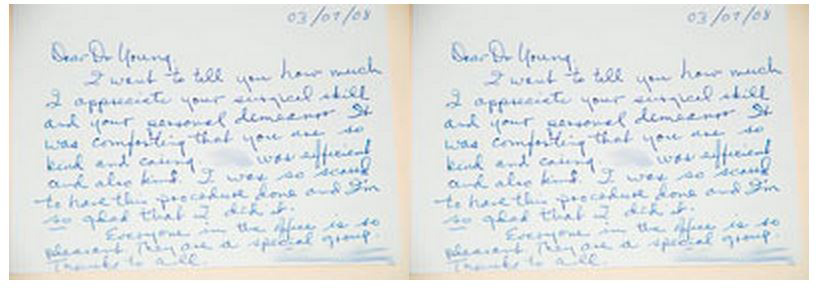 03/07/08
Dear Dr Young,
I want to tell you how much
I appreciate your surgical skill
and your personal demeanor. It
was comforting that you are so
kind and caring was efficient
and also kind. I was so scared
to have this procedure done and I'm
so glad that I did it.
Everyone in the office is so
pleasant, They are a special group.
Thanks to all.
03/07/08
Dear Dr Young,
I want to tell you how much
I appreciate your surgical skill
and your personal demeanor. It
was comforting that you are so
kind and caring was efficient
and also kind. I was so scared
to have this procedure done and I'm
so glad that I did it.
Everyone in the office is so
pleasant, They are a special group.
Thanks to all.